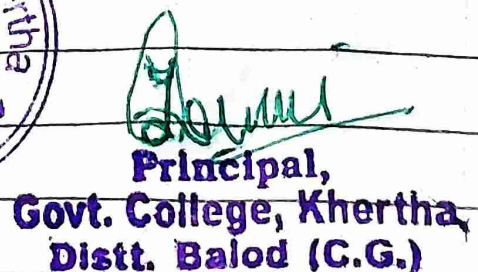 rtha
Principal,
Govt. College, Khertha,
Distt. Balod (C.G.)